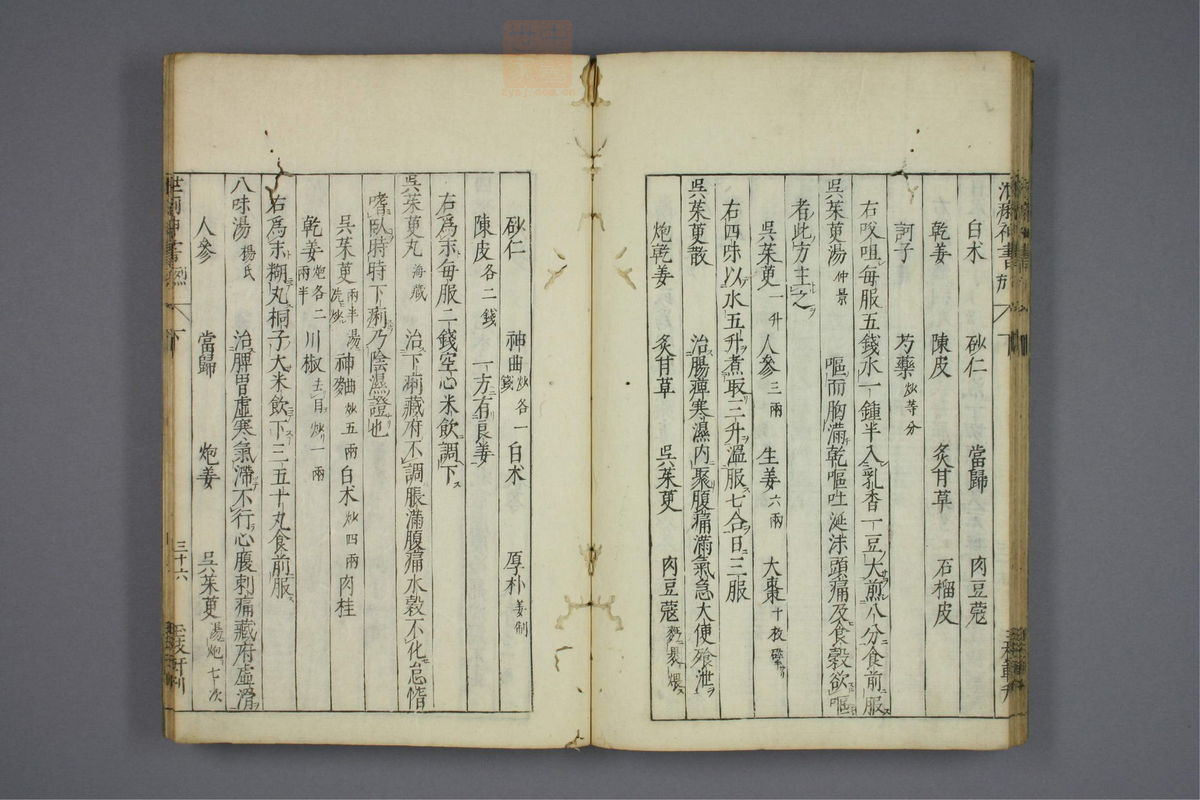 白朮 砂仁 當歸 肉豆蔻
乾姜 陳皮 炙甘草 石榴皮
訶子 芍藥炒等分
右㕮咀每服五錢水一鍾半入乳香一豆大煎八分食前服
吳茱萸湯仲景 嘔而胸滿乾嘔吐涎沫頭痛及食穀欲嘔
者此方主之
吳茱萸一升 人參三兩 生姜六兩 大棗十枚
右四味以水五升煮取三升溫服七合日三服
吳茱萸散 治腸痺寒濕內聚腹痛滿氣急大便飱泄
炮乾姜 炙甘草 吳茱萸 肉豆蔻
砂仁 神曲炒各一錢 白朮 厚朴姜制
陳皮各二錢 一方有良姜
右為末每服二錢空心米飲調下
吳茱萸丸海藏 治下痢藏府不調脹滿腹痛水穀不化怠惰
嗜臥時時下痢乃陰濕證也
吳茱萸兩半湯洗炒 神麯炒五兩 白朮炒四兩 肉桂
乾姜炮各二兩半 川椒去目炒一兩
右為末糊丸桐子大米飲下三五十丸食前服
八味湯楊氏 治脾胃虛寒氣滯不行心腹刺痛藏府虛滑
人參 當歸 炮姜 吳茱萸湯炮七次
三十六